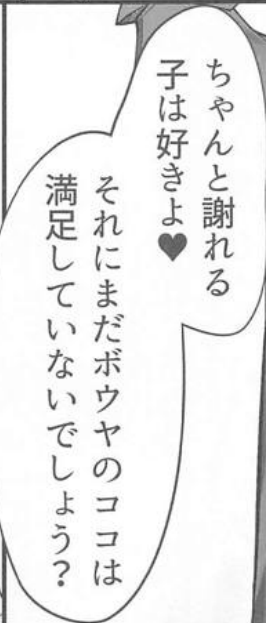 ちゃんと謝れる
子は好きよ♥
それにまだボウヤのココは
満足していないでしょう?